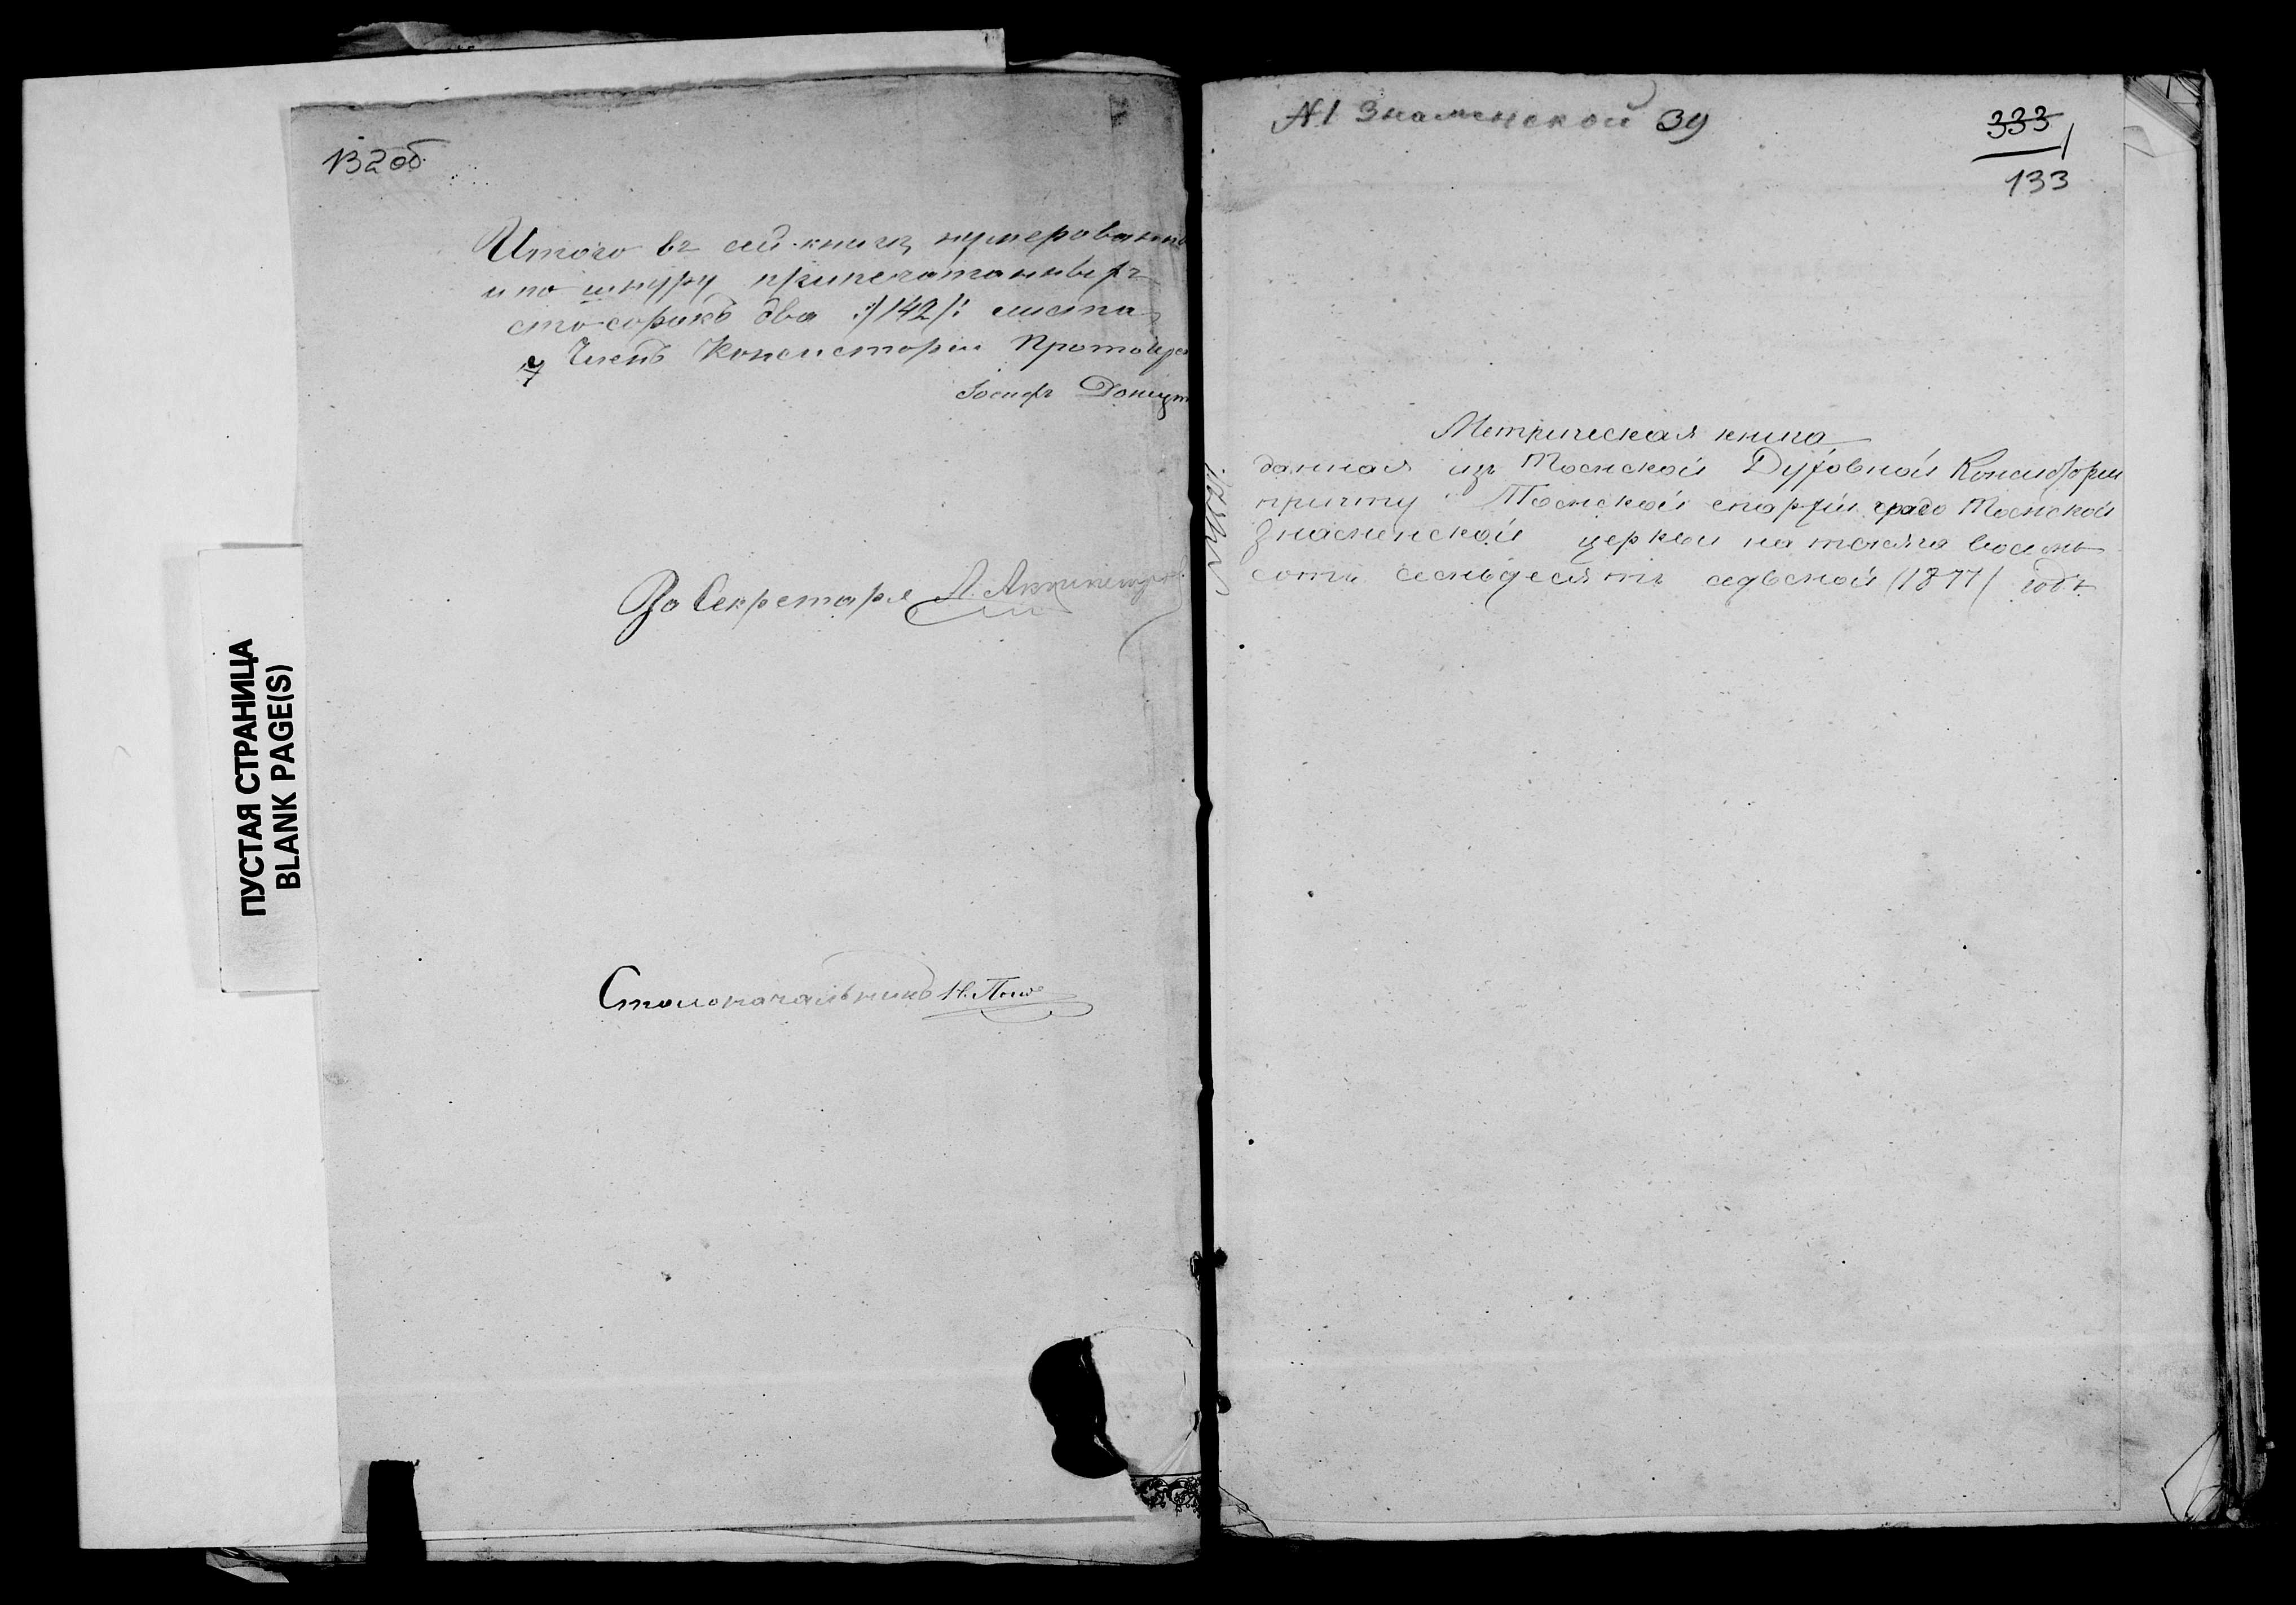 132об.
Итого въ сей книгѣ нумерованныхъ
и по шнуру припечатанныхъ
сто сорокъ два :/142/: листа
Членъ Консисторіи Протоіерей
Іосифъ
За Секретаря А.
Столоначальникъ Н.
ПУСТАЯ СТРАНИЦА
BLANK PAGE(S)
№1 Знаменской 39
333
133
Метрическая книга
данная изъ Томской Духовной Консисторіи
причту Томской епархіи градо Томской
Знаменской церкви на тысяча восемь
сотъ семьдесятъ седьмой /1877/ годъ